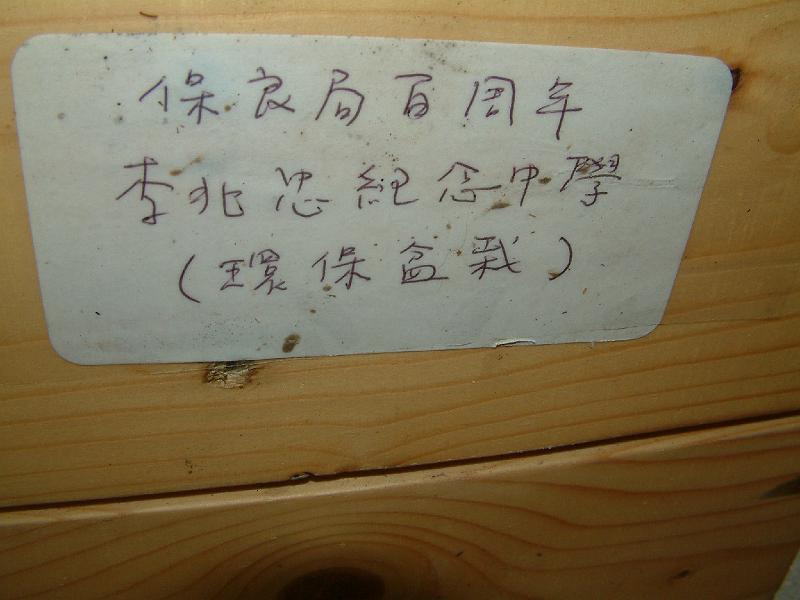 保良局百周年
李兆忠紀念中學
(環保盆栽)